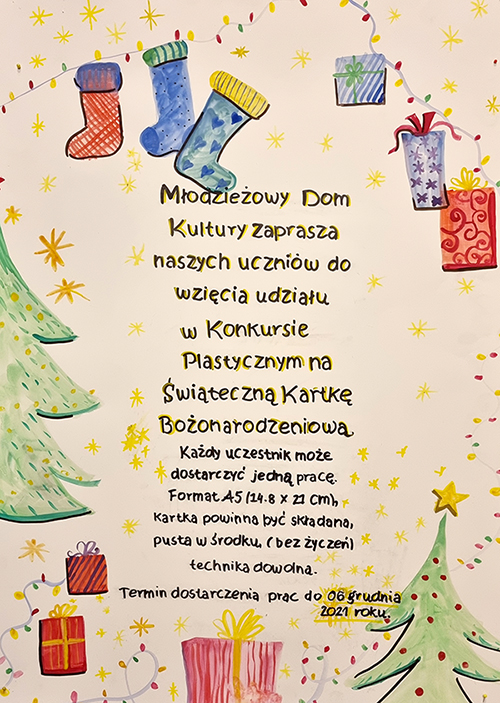 Młodzieżowy Dom
Kultury zaprasza
naszych uczniów do
wzięcia udziału
w Konkursie
Plastycznym na
Świąteczną Kartkę
Bożonarodzeniową
Każdy uczestnik może
dostarczyć jedną pracę.
Format A5 (14.8 x 21 cm),
Kartka powinna być składana,
pusta w środku, (bez życzeń)
technika dowolna.
Termin dostarczenia prac do 06 grudnia
2021 roku.